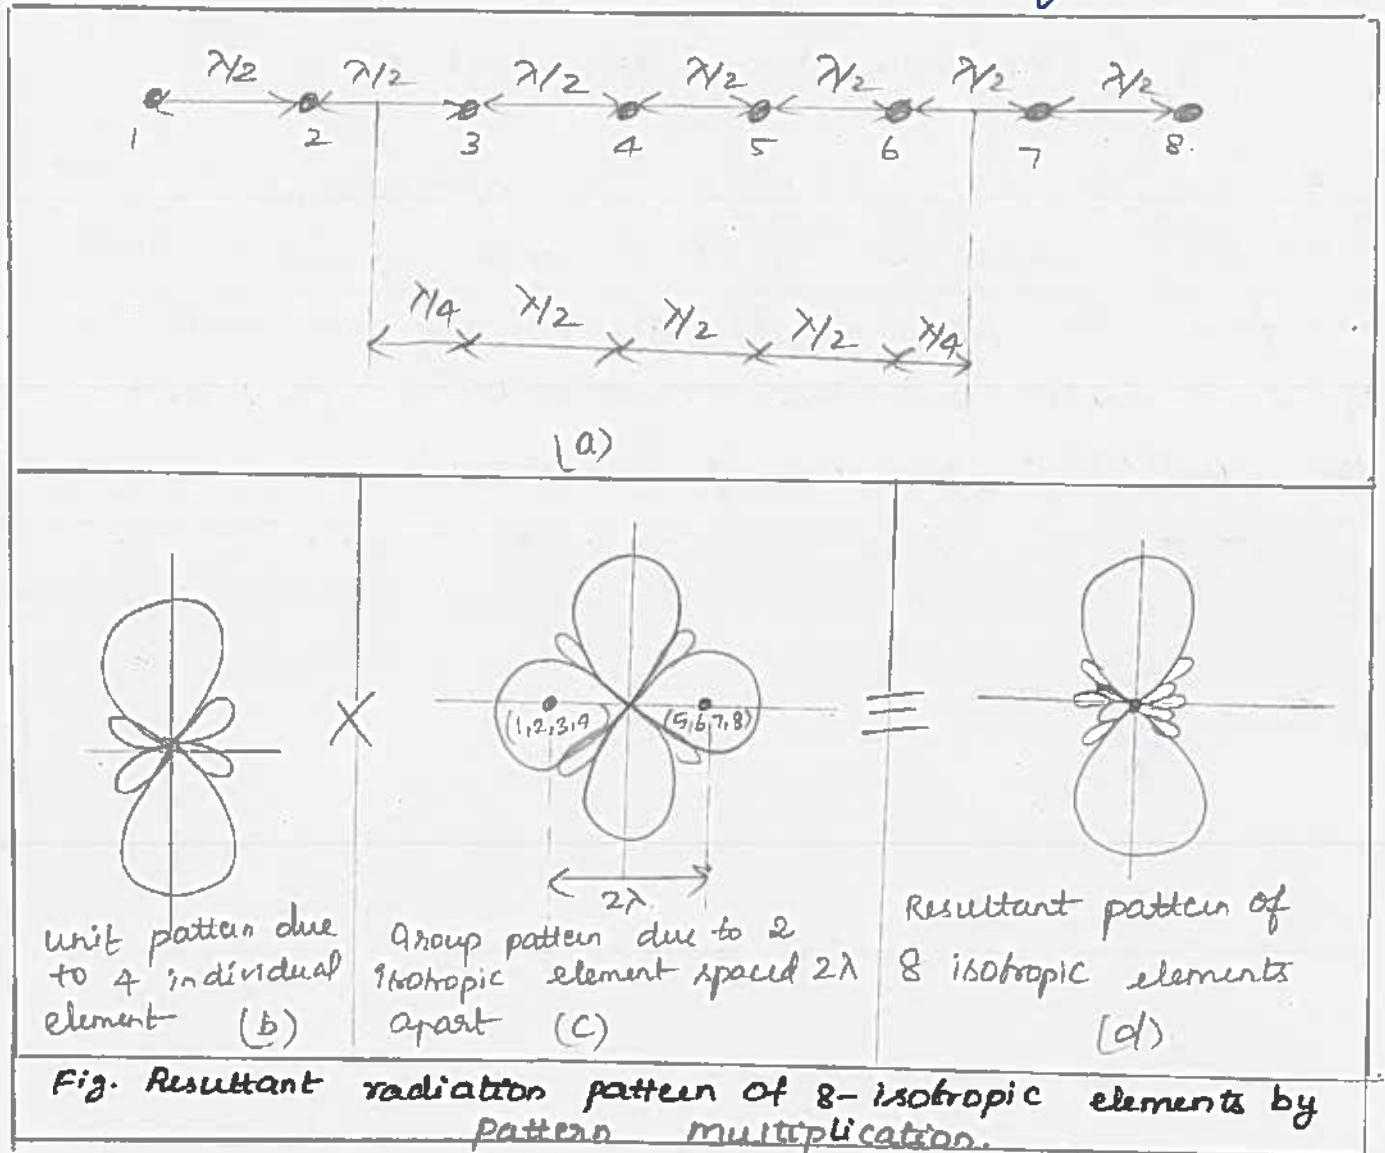 λ/2 λ/2 λ/2 λ/2 λ/2 λ/2 λ/2
1 2 3 4 5 6 7 8.
λ/4 λ/2 λ/2 λ/2 λ/4
(a)
(1,2,3,4) (5,6,7,8)
X ≡
2λ
unit pattern due
to 4 individual
element (b)
Group pattern due to 2
isotropic element spaced 2λ
apart (c)
Resultant pattern of
8 isotropic elements
(d)
Fig. Resultant radiation pattern of 8-isotropic elements by
pattern multiplication.